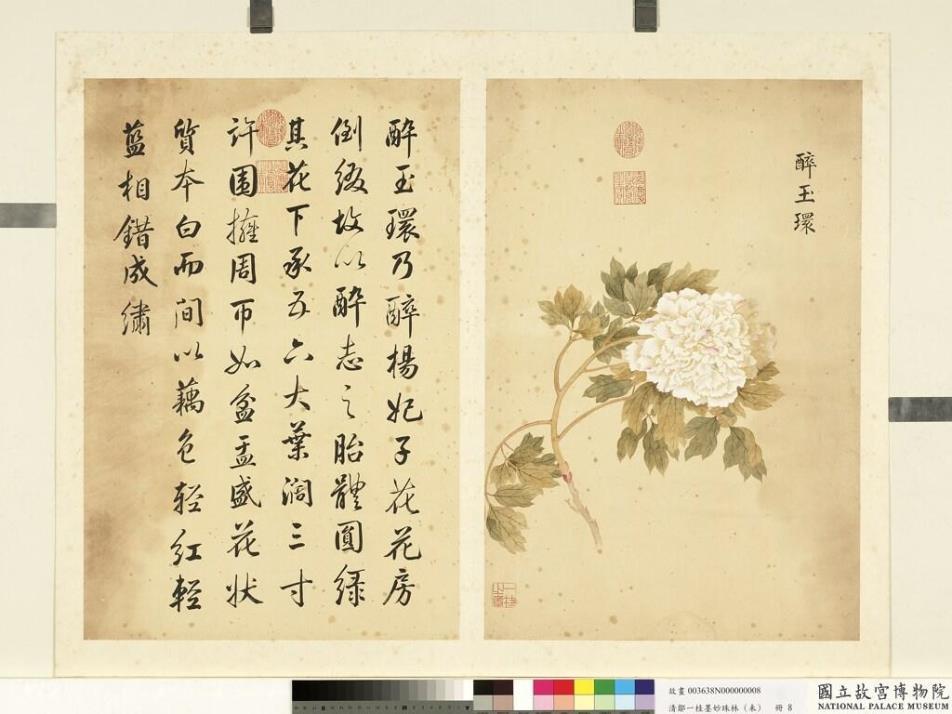 醉玉環
醉玉環乃醉楊妃子花花房
倒綴故以醉志之胎體圓綠
其花下承五六大葉濶三寸
許圍擁周帀如盆盂盛花狀
質本白而間以藕色輕紅輕
藍相錯成繡
故畫 003638N000000008
清鄒一桂墨妙珠林(未) 冊 8
國立故宮博物院
NATIONAL PALACE MUSEUM